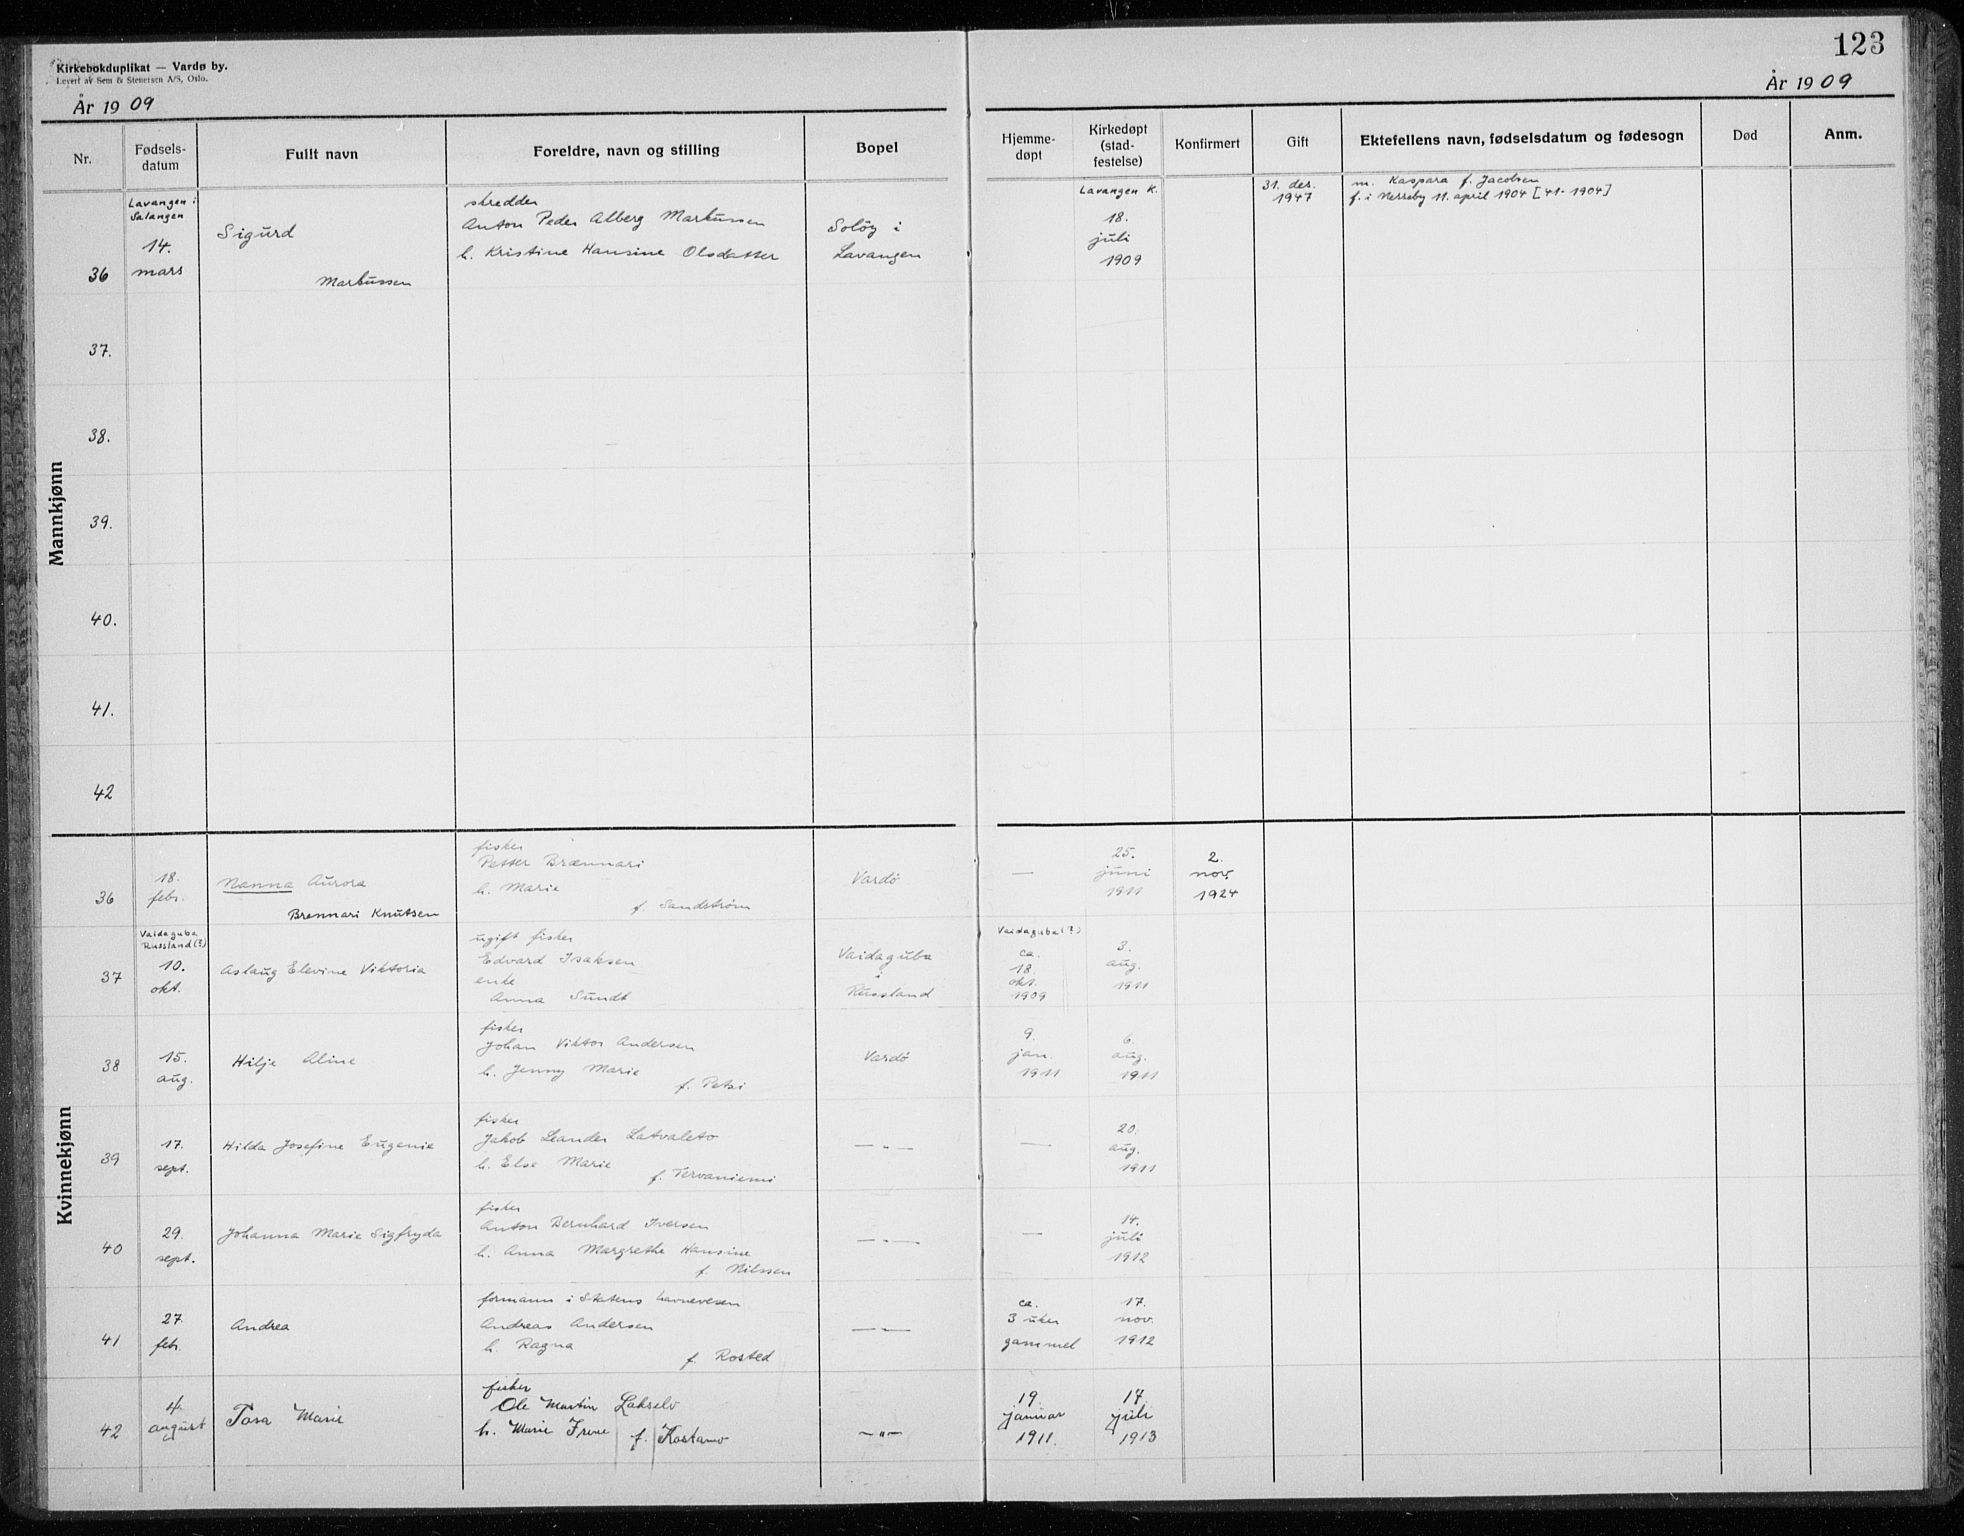 Kirkebokduplikat — Vardø by.
Levert av Sem & Stenersen A/S, Oslo.
År 1909
123
År 1909
Nr.
Fødsels-
datum
Fullt navn
Foreldre, navn og stilling
Bopel
Hjemme-
døpt
Kirkedøpt
(stad-
festelse)
Konfirmert
Gift
Ektefellens navn, fødselsdatum og fødesogn
Død
Anm.
Mannkjønn
36
Lavangen i
Salangen
14.
mars
Sigurd
Markussen
skredder
Anton Peder Alberg Markussen
h. Kristine Hansine Olsdatter
Soløy i
Lavangen
Lavangen K.
18.
juli
1909
31. des.
1947
m. Kaspara f. Jacobsen
f. i Nesseby 11. april 1904 [41-1904]
37.
38.
39.
40.
41.
42
Kvinnekjønn
36
18.
febr.
Nanna Aurora
Brennari Knutsen
fisker
Petter Brænnari
h. Marie
f. Sandstrøm
Vardö
—
25.
juni
1911
2.
nov.
1924
37
Vaidaguba
Russland (?)
10.
okt.
Aslaug Elevine Viktoria
ugift fisker
Edvard Isaksen
enke
Anna Sundt
Vaidaguba
i
Russland
Vaidaguba (?)
ca.
18.
okt.
1909
3.
aug.
1911
38
15.
aug.
Hilje Aline
fisker
Johan Viktor Andersen
h. Jenny Marie
f. Petsi
Vardö
9.
jan.
1911
6.
aug.
1911
39
17.
sept.
Hilda Josefine Eugenie
fisker
Jakob Leander Latvaleto
h. Else Marie
f. Tervaniemi
— " —
—
20.
aug.
1911
40
29.
sept.
Johanna Marie Sigfryda
fisker
Anton Bernhard Iversen
h. Anna Margrethe Hansine
f. Nilssen
— " —
—
14.
juli
1912
41
27.
febr.
Andrea
formann i Statens havnevesen
Andreas Andersen
h. Ragna
f. Rosted
— " —
ca.
3 uker
gammel
17.
nov.
1912
42
4.
august
Tora Marie
fisker
Ole Martin Lakselv
h. Marie Irene f. Kostamo
— " —
19.
januar
1911.
17.
juli
1913